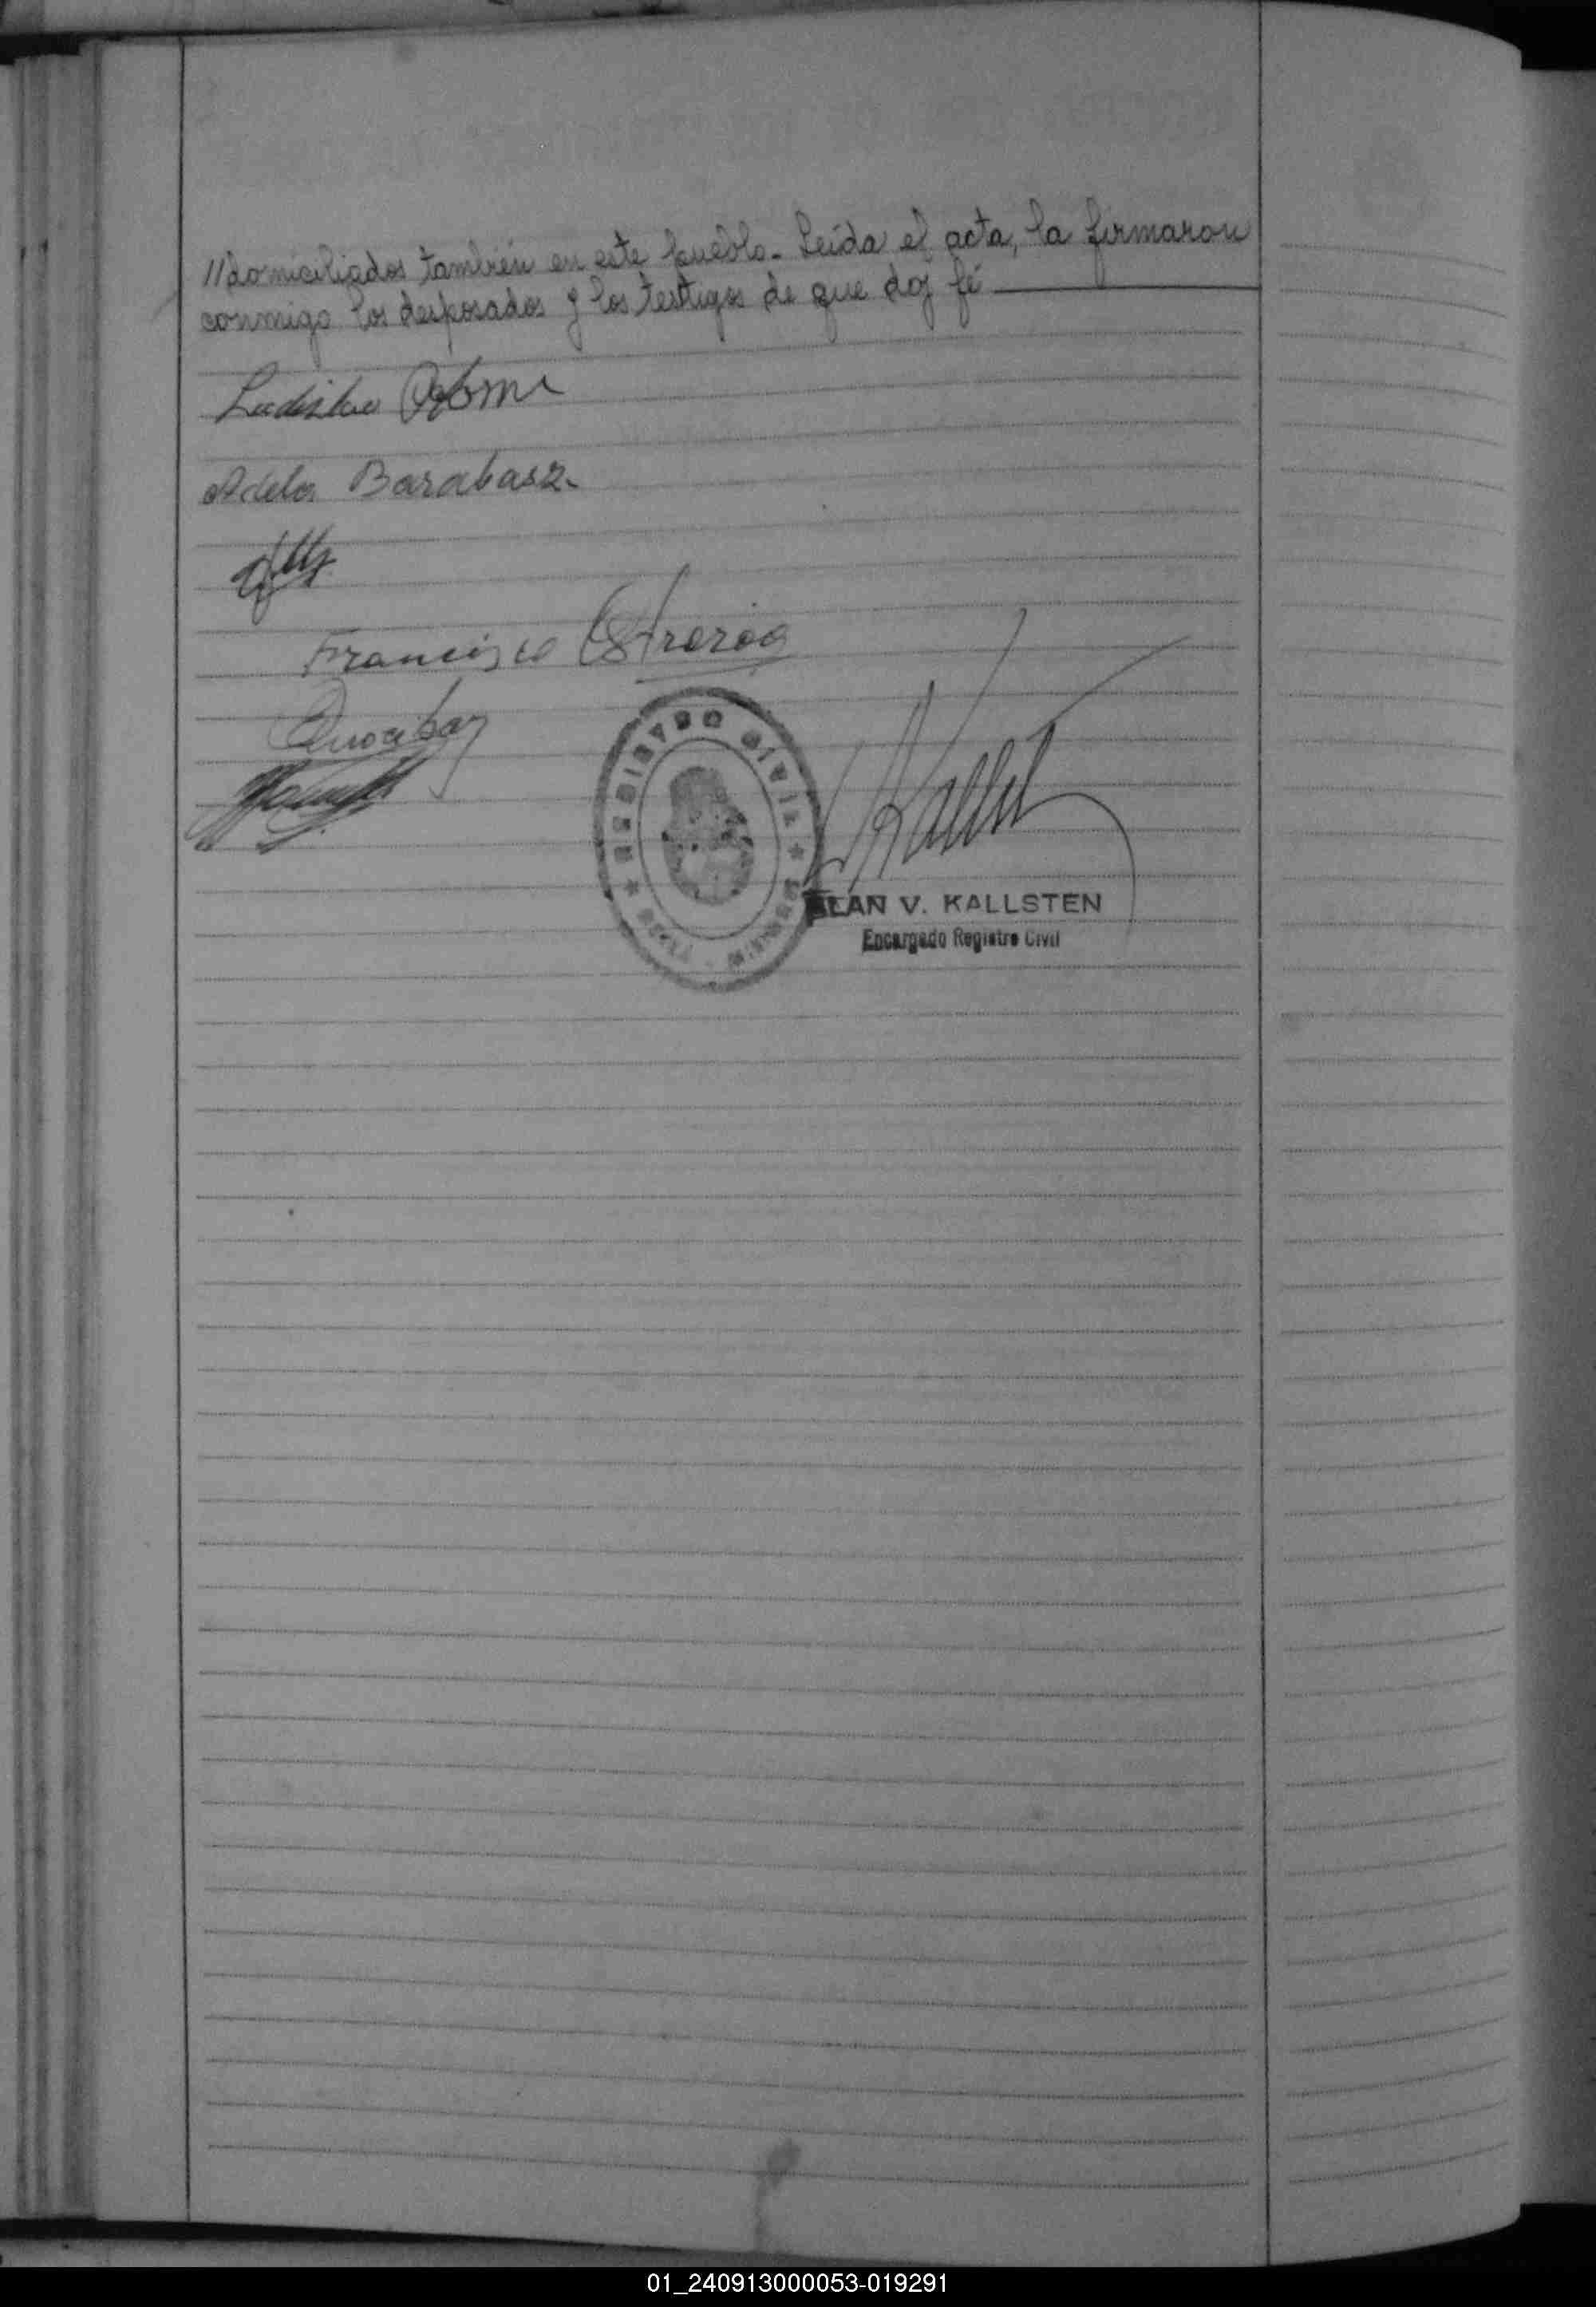 //domiciliados también en este pueblo.- Leída el acta, la firmaron
conmigo los desposados y los testigos de que doy fé
Ladislao
Adela Barabasz
Francisco
REGISTRO CIVIL
ALAN V. KALLSTEN
Encargado Registro Civil
01_240913000053-019291